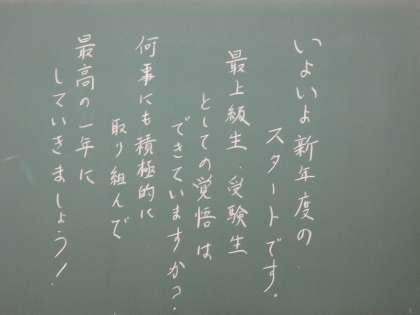 いよいよ新年度の
スタートです。
最上級生、受験生
としての覚悟は
できていますか?
何事にも積極的に
取り組んで
最高の一年に
していきましょう!